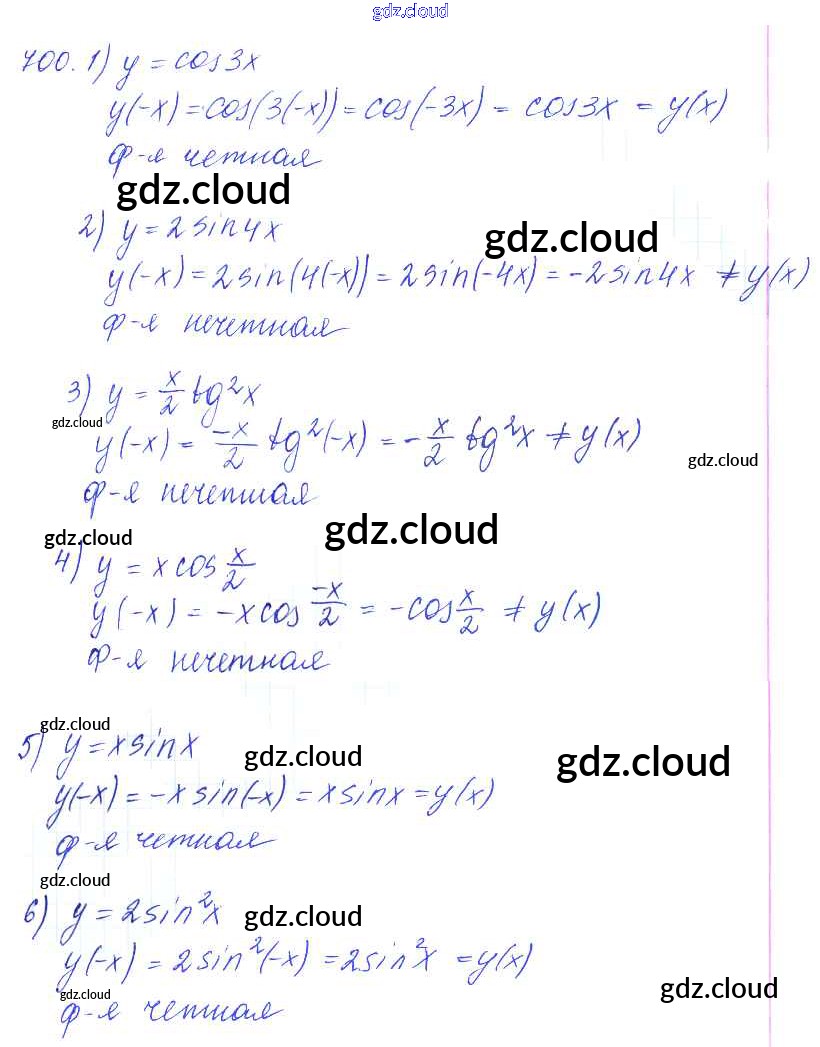 gdz.cloud
700. 1) y = cos3x
y(-x) = cos(3(-x)) = cos(-3x) = cos3x = y(x)
ф-я четная
gdz.cloud
2) y = 2sin4x
gdz.cloud
y(-x) = 2sin(4(-x)) = 2sin(-4x) = -2sin4x ≠ y(x)
ф-я нечетная
3) y = x/2 tg²x
gdz.cloud
y(-x) = -x/2 tg²(-x) = -x/2 tg²x ≠ y(x)
gdz.cloud
ф-я нечетная
gdz.cloud
gdz.cloud
4) y = x cos x/2
y(-x) = -x cos -x/2 = -cos x/2 ≠ y(x)
ф-я нечетная
gdz.cloud
5) y = x sinx
gdz.cloud
gdz.cloud
y(-x) = -x sin(-x) = x sinx = y(x)
ф-я четная
gdz.cloud
6) y = 2sin²x
gdz.cloud
y(-x) = 2sin²(-x) = 2sin²x = y(x)
gdz.cloud
gdz.cloud
ф-я четная